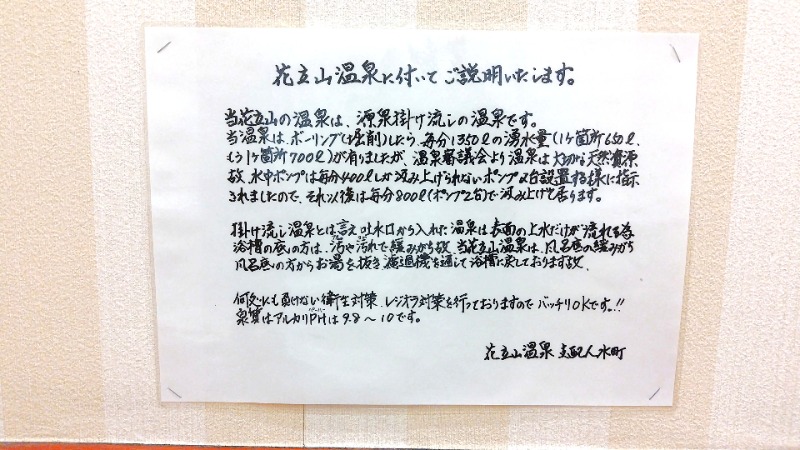 花立山温泉に付いてご説明いたします。
当花立山の温泉は、源泉掛け流しの温泉です。
当温泉は、ボーリング(堀削)したら、毎分1350ℓの湧水量(1ヶ箇所650ℓ、
もう1ヶ箇所700ℓ)が有りましたが、温泉審議会より温泉は大切な天然資源
故、水中ポンプは毎分400ℓしか汲み上げられないポンプ2台設置する様に指示
されましたので、それ以後は毎分800ℓ(ポンプ2台)で汲み上げて居ります。
掛け流し温泉とは言え吐水口から入れた温泉は表面の上水だけが流れる為
浴槽の底の方は、汚や汚れで緩みがち故、当花立山温泉は、風呂底の緩みがち
風呂底の方からお湯を抜き濾過機を通して浴槽に戻しております故、
何処にも負けない衛生対策、レジオラ対策を行っておりますのでバッチリOKです。!!
泉質はアルカリPHは9.8〜10です。
花立山温泉 支配人水町